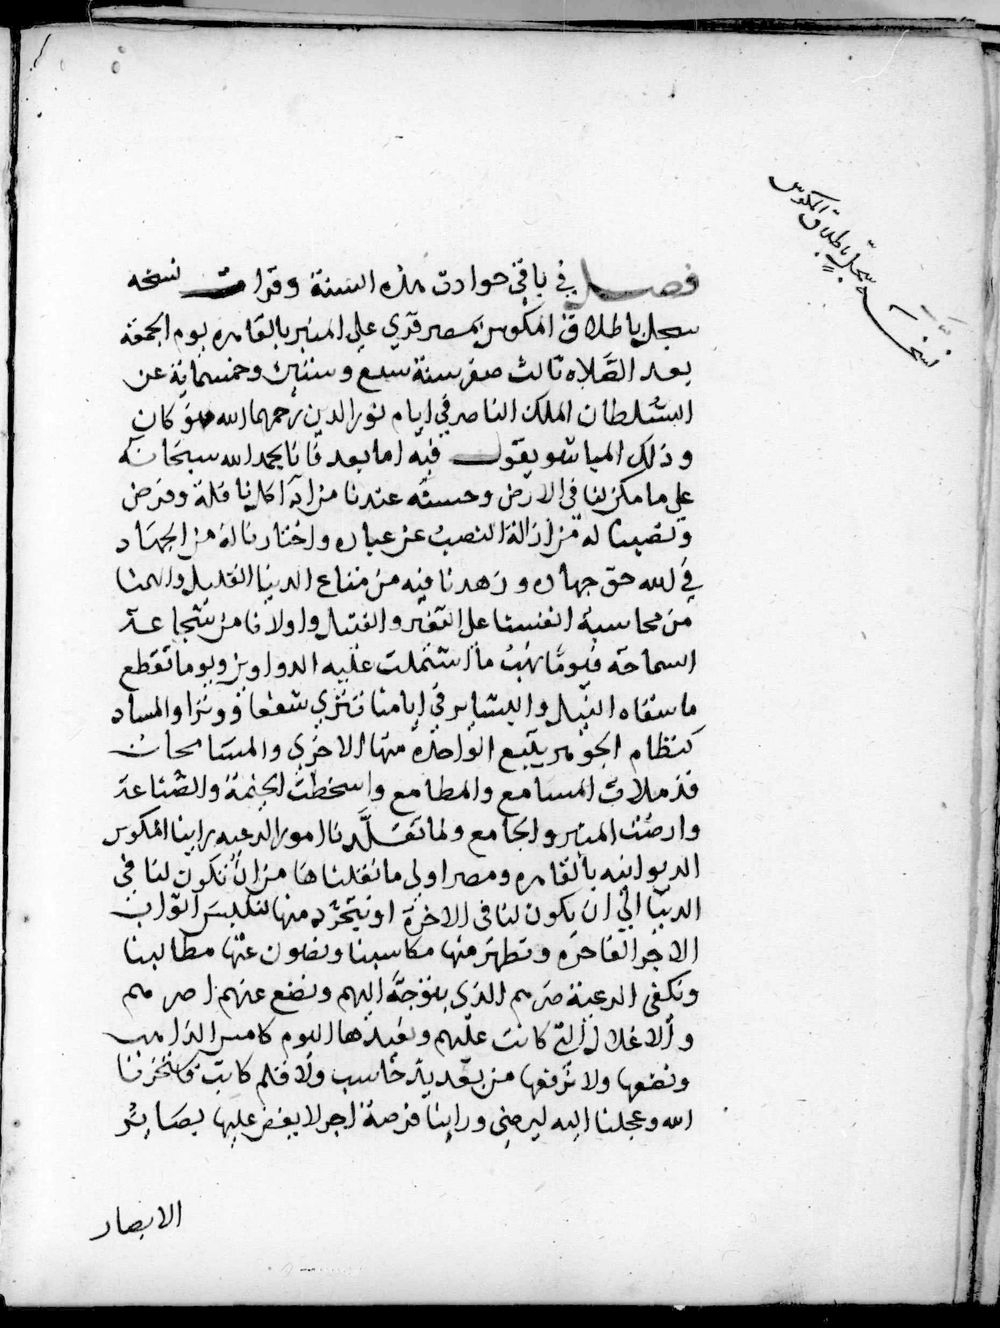 نسخة سجل باطلاق المكوس
فصل في باقي حوادث هذه السنة وقرات نسخه
سجل باطلاق المكوس بمصر قري علي المنبر بالقاهره يوم الجمعة
بعد الصَّلاه ثالث صفر سنة سبع وستين وخمسماية عن
السُّلطان الملك الناصر في ايام نور الدين رحمهما الله هو كان
وذلك المباشر ويقول فيه اما بعد فانا نحمد الله سبحانه
علي ما مكن لنا في الارض وحسنه عندنا من اداء كل نافلة وفرض
ونصبنا له من ازالة النصب عن عباده واختارنا له من الجهاد
في لله حق جهاده وزهدنا فيه من متاع الدنيا القليل والهمنا
من محاسبة انفسنا علي النقير والفتيل واولانا من شجاعة
السماحة فيومًا نهب ما اشتملت عليه الدواوين ويوما نقطع
ما سقاه النيل والبشاير في ايامنا تتري شفعًا ووترا والمساد
كنظام الجوهر يتبع الواحدة منها الاخري والمسَامحات
قد ملات المسامع والمطامع واسخطت الخيمة والصّناعة
وارضت المنبر والجامع ولما تقلَّدنا امور الرعيه راينا المكوس
الديوانيه بالقاهره ومصر اولي ما نقلناها من ان تكون لنا في
الدنيا الي ان يكون لنا في الاخرة او نتجرّد منها لنلبس اثواب
الاجر الفاخره ونطهر منها مكاسبنا ونصون عنها مطالبنا
ونكفي الرعية ضرهم الذي يتوجّه اليهم ونضع عنهم اصرهم
والاغلال التي كانت عليهم ونعيدها اليوم كامس الذاهب
ونضعها ولا نرفعها من بعد يد حاسب ولا قلم كاتب فاستخرنا
الله وعجلنا اليه ليرضي وراينا فرصة اجر لا يغض عليها بصاير
الابصار